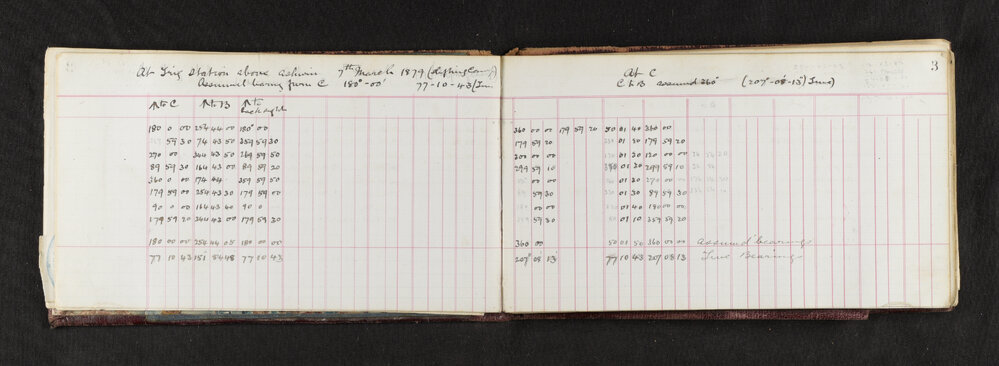 At Trig Station above 7th March 1879
Assumed bearing from C 180°-00' 77-10-43
to C to B to back sight
180 0 00 254 44 00 180 00
59 30 74 43 50 359 59 30
270 00 344 43 50 269 59 50
89 59 30 164 43 00 89 59 20
360 0 00 174 44 359 59 50
179 59 00 254 43 30 179 59 00
90 0 00 164 43 40 90 0
179 59 20 344 43 00 179 59 30
180 00 00 254 44 05 180 00 00
77 10 43 151 54 48 77 10 43
3
At C
C to B assumed 360° (207°-08-13) True)
360 00 00 179 59 20 50 01 40 360 00
179 59 20 01 30 179 59 20
300 00 00 01 30 120 00 00
299 59 10 01 30 299 59 10
00 00 01 30 270 00
59 30 01 30 89 59 30
00 00 01 40 180 00 00
59 30 01 10 359 59 20
360 00 50 01 50 360 00 00 Assumed bearings
207° 08 13 77 10 43 207 08 13 True Bearings